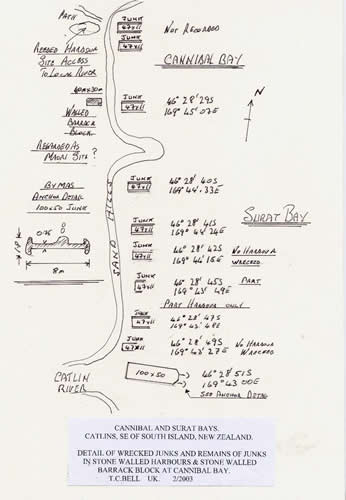 PATH
JUNK
47x11
JUNK
47x11
NOT RECORDED
CANNIBAL BAY
HARBOUR
SITE ACCESS
TO LOCAL RIVER
N
40mx30m
WALLED
BARRACK
BLOCK
REGARDED AS
MAORI SITE ?
JUNK
47x11
46° 28' 29S
169° 45' 07E
JUNK
47x11
46° 28' 40S
169° 44' 33E
ANCHOR DETAIL
100x50 JUNK
SAND HILLS
SURAT BAY
JUNK
47x11
46° 28' 41S
169° 44' 24E
JUNK
47x11
46° 28' 42S
169° 44' 15E
NO HARBOUR
WRECKED.
0.75
8m
JUNK
47x11
46° 28' 45S
169° 43' 49E
PART
PART HARBOUR ONLY
JUNK
47x11
46° 28' 47S
169° 43' 48E
JUNK
47x11
46° 28' 49S
169° 43' 27E
NO HARBOUR
WRECKED
CATLIN
RIVER
100x50
46° 28' 51S
169° 43' 00E
SEE ANCHOR DETAIL
CANNIBAL AND SURAT BAYS.
CATLINS, SE OF SOUTH ISLAND, NEW ZEALAND.
DETAIL OF WRECKED JUNKS AND REMAINS OF JUNKS
IN STONE WALLED HARBOURS & STONE WALLED
BARRACK BLOCK AT CANNIBAL BAY.
T.C.BELL UK. 2/2003